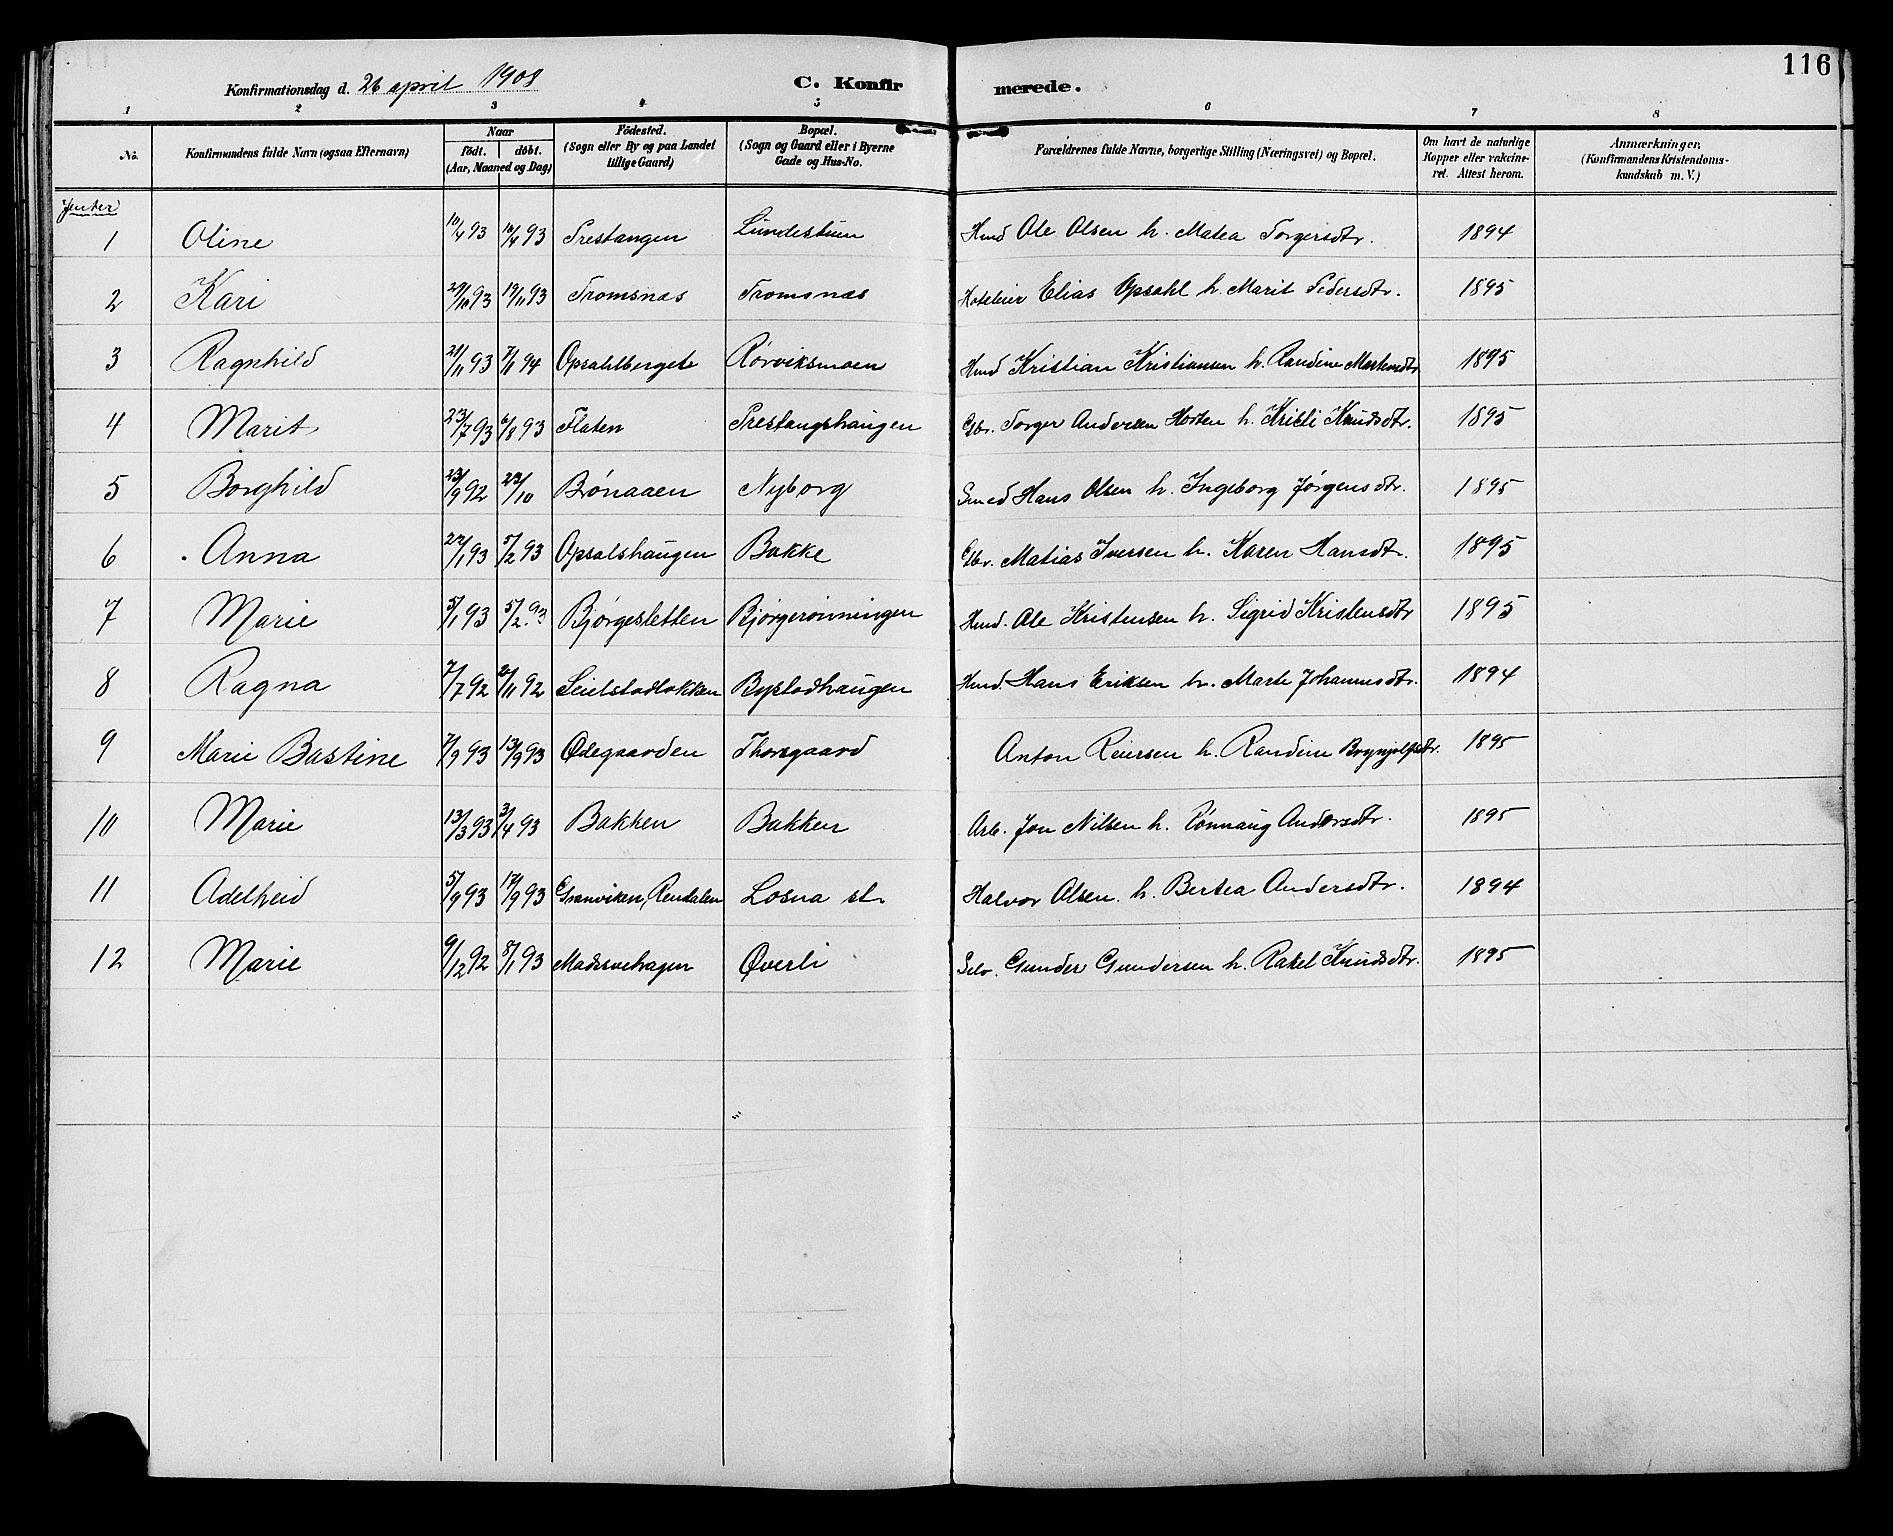 116
Konfirmationsdag d. 26 april 1908 C. Konfirmerede.
1 2 3 4 5 6 7 8
No. Konfirmandens fulde Navn (ogsaa Efternavn) Naar født. døbt. (Aar, Maaned og Dag) Fødested. (Sogn eller By og paa Landet tillige Gaard) Bopæl. (Sogn og Gaard eller i Byerne Gade og Hus-No. Forældrenes fulde Navne, borgerlige Stilling (Næringsvei) og Bopæl. Om havt de naturlige Kopper eller vakcineret. Attest herom. Anmærkninger, (Konfirmandens Kristendomskundskab m. V.)
Jenter
1 Oline 10/4 93 16/4 93 Prestangen Lundestuen Hmd Ole Olsen h. Matea Torgersdtr. 1894
2 Kari 29/10 93 19/11 93 Tromsnæs Tromsnæs Hoteleier Elias Opsahl h. Marit Pedersdtr. 1895
3 Ragnhild 21/11 93 7/1 94 Opsahlberget Rørviksmoen Hmd Kristian Kristiansen h. Randine 1895
4 Marit 23/7 93 6/8 93 Flaten Prestangshaugen Gbr. Torger Andersen Hosten h. Kristi Knudsdtr. 1895
5 Borghild 23/9 92 23/10 Brønaaen Nyborg Smed Hans Olsen h. Ingeborg Jørgensdtr. 1895
6 Anna 22/1 93 5/2 93 Opsalshaugen Bakke Gbr. Matias Iversen h. Karen Hansdtr. 1895
7 Marie 5/1 93 5/2 93 Bjørgesletten Bjørgerønningen Hmd. Ole Kristensen h. Sigrid Kristensdtr 1895
8 Ragna 7/7 92 20/11 92 Seielstadløkken Bystadhaugen Hmd. Hans Eriksen h. Marte Johannesdtr. 1894
9 Marie Bastine 7/9 93 13/9 93 Ødegaarden Thorsgaard Anton Reiersen h. Randine Brynjolfsdtr. 1895
10 Marie 13/3 93 3/4 93 Bakken Bakken Arb. Jon Nilsen h. Rønnaug Andersdtr. 1895
11 Adelheid 5/9 93 17/9 93 Granviken, Rendalen Losna st. Halvor Olsen. h. Bertea Andersdtr. 1894
12 Marie 9/12 92 8/1 93 Øverli Selv. Gunder Gundersen h. Rakel Knudsdtr. 1895